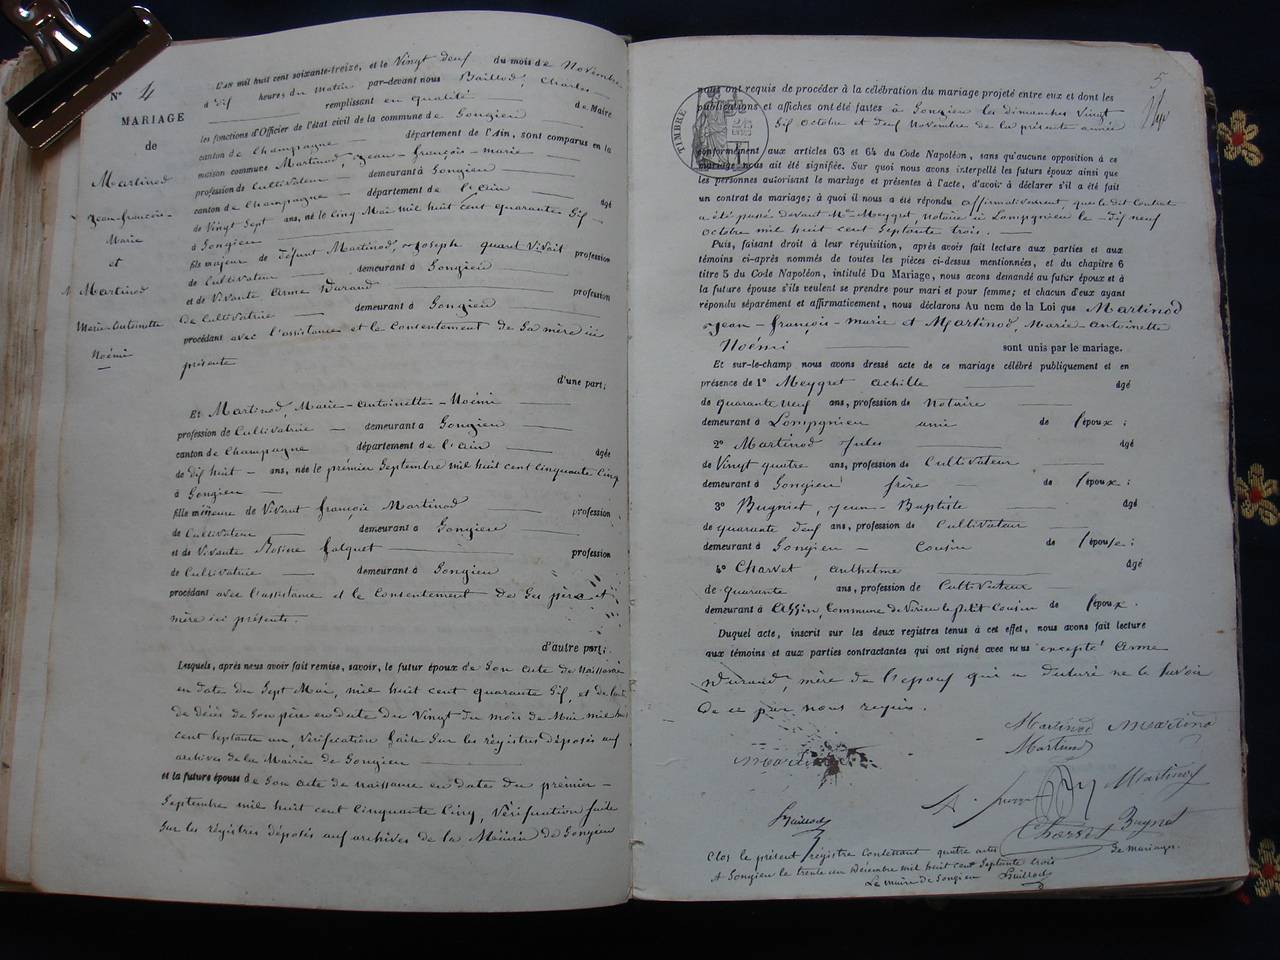 N° 4
MARIAGE
de
Martinod
Jean-françois-
Marie
et
Martinod
Marie-Antoinette
Noémi
L'AN mil huit cent soixante-treize, et le Vingt deux du mois de Novembre
à dix heures du matin par-devant nous Baillod, Charles
remplissant en qualité de Maire
les fonctions d'Officier de l'état civil de la commune de Songieu
canton de Champagne département de l'Ain, sont comparus en la
maison commune Martinod, Jean-françois-marie
profession de Cultivateur demeurant à Songieu
canton de Champagne département de l'ain âgé
de Vingt Sept ans, né le cinq Mai mil huit cent quarante Six
à Songieu
fils majeur de défunt Martinod, Joseph quand Vivait profession
de Cultivateur demeurant à Songieu
et de Vivante Arme Durand profession
de Cultivatrice demeurant à Songieu
procédant avec l'assistance et le Consentement de Sa mère ici
présente
d'une part;
Et Martinod, Marie-Antoinette-Noémi
profession de Cultivatrice demeurant à Songieu
canton de Champagne département de l'ain âgée
de dix huit ans, née le prémier Septembre mil huit cent cinquante Cinq
à Songieu
fille mineure de Vivant françois Martinod profession
de Cultivateur demeurant à Songieu
et de Vivante Rosine profession
de Cultivatrice demeurant à Songieu
procédant avec l'assistance et le Consentement de Ses père et
mère ici présents.
d'autre part;
Lesquels, après nous avoir fait remise, savoir, le futur époux de Son acte de naissance
en date du Sept Mai, mil huit cent quarante Six, et de l'acte
de décès de Son père en date du Vingt du mois de Mai mil huit
cent Septante un, Vérification faite Sur les régistres déposés aux
archives de la Mairie de Songieu
et la future épouse de Son acte de naissance en date du prémier
Septembre mil huit cent Cinquante Cinq, Vérification faite
Sur les régistres déposés aux archives de la Mairie de Songieu
5
TIMBRE
nous ont requis de procéder à la célébration du mariage projeté entre eux et dont les
publications et affiches ont été faites à Songieu les dimanches Vingt
Six Octobre et deux Novembre de la présente année
conformément aux articles 63 et 64 du Code Napoléon, sans qu'aucune opposition à ce
mariage nous ait été signifiée. Sur quoi nous avons interpellé les futurs époux ainsi que
les personnes autorisant le mariage et présentes à l'acte, d'avoir à déclarer s'il a été fait
un contrat de mariage; à quoi il nous a été répondu affirmativement, que le dit Contrat
a été passé devant Me Meygret, Notaire à Lompgnieu le dix neuf
Octobre mil huit cent Septante trois.
Puis, faisant droit à leur réquisition, après avoir fait lecture aux parties et aux
témoins ci-après nommés de toutes les pièces ci-dessus mentionnées, et du chapitre 6
titre 5 du Code Napoléon, intitulé Du Mariage, nous avons demandé au futur époux et à
la future épouse s'ils veulent se prendre pour mari et pour femme; et chacun d'eux ayant
répondu séparément et affirmativement, nous déclarons Au nom de la Loi que Martinod
Jean-françois-marie et Martinod, Marie-antoinette
Noémi sont unis par le mariage.
Et sur-le-champ nous avons dressé acte de ce mariage célébré publiquement et en
présence de 1° Meygret Achille âgé
de quarante neuf ans, profession de Notaire
demeurant à Lompgnieu ami de l'époux;
2° Martinod Jules âgé
de Vingt quatre ans, profession de Cultivateur
demeurant à Songieu frère de l'époux;
3° Bugniet, Jean-Baptiste âgé
de quarante deux ans, profession de Cultivateur
demeurant à Songieu Cousin de l'épouse;
4° Charvet, anthelme âgé
de quarante ans, profession de Cultivateur
demeurant à Assin, Commune de Virieu le petit Cousin de l'époux.
Duquel acte, inscrit sur les deux registres tenus à cet effet, nous avons fait lecture
aux témoins et aux parties contractantes qui ont signé avec nous excepté Arme
Durand, mère de l'époux qui a déclaré ne le Savoir
de ce par nous requis.
Martinod Martinod
Martinod
Martinod
Baillod
Charvet
Bugniet
Clos le présent régistre Contenant quatre actes de mariages.
A Songieu le trente un Décembre mil huit cent Septante trois
Le maire de Songieu Baillod